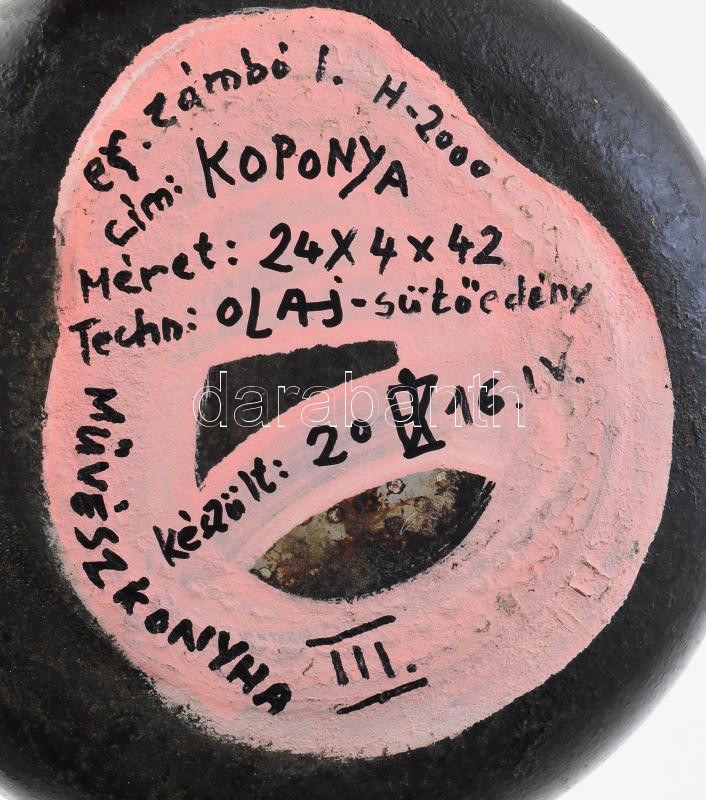 ef. zámbó I. H-2000
cím: KOPONYA
Méret: 24X4x42
Techn: OLAj-sütőedény
készült: 20 16.IV.
MŰVÉSZKONYHA
III.
darabanth